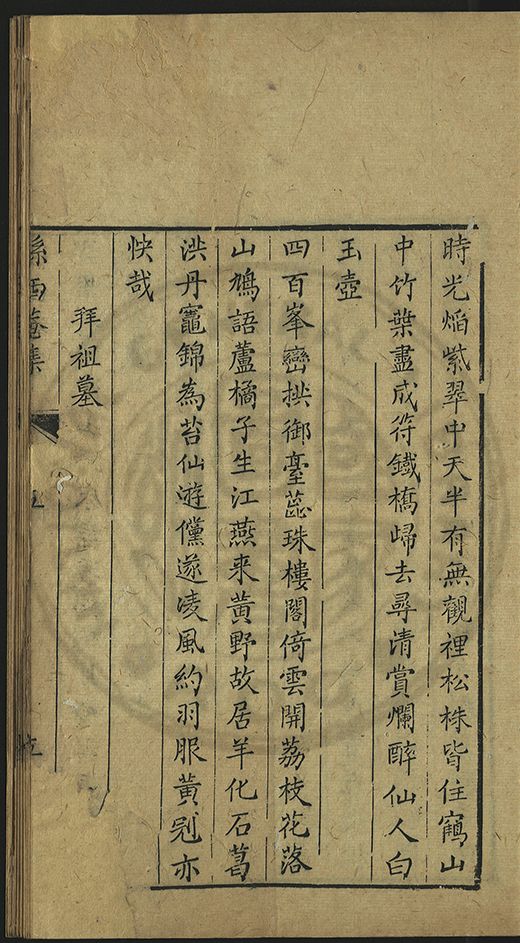 時光焰紫翠中天半有無觀裡松株皆住鶴山
中竹葉盡成符鐵橋歸去尋清賞爛醉仙人白
玉壺
四百峯巒拱御臺蕋珠樓閣倚雲開荔枝花落
山鳩語蘆橘子生江燕来黃野故居羊化石葛
洪丹竈錦為苔仙遊儻遂凌風約羽服黃冠亦
快哉
拜祖墓
孫西菴集
五